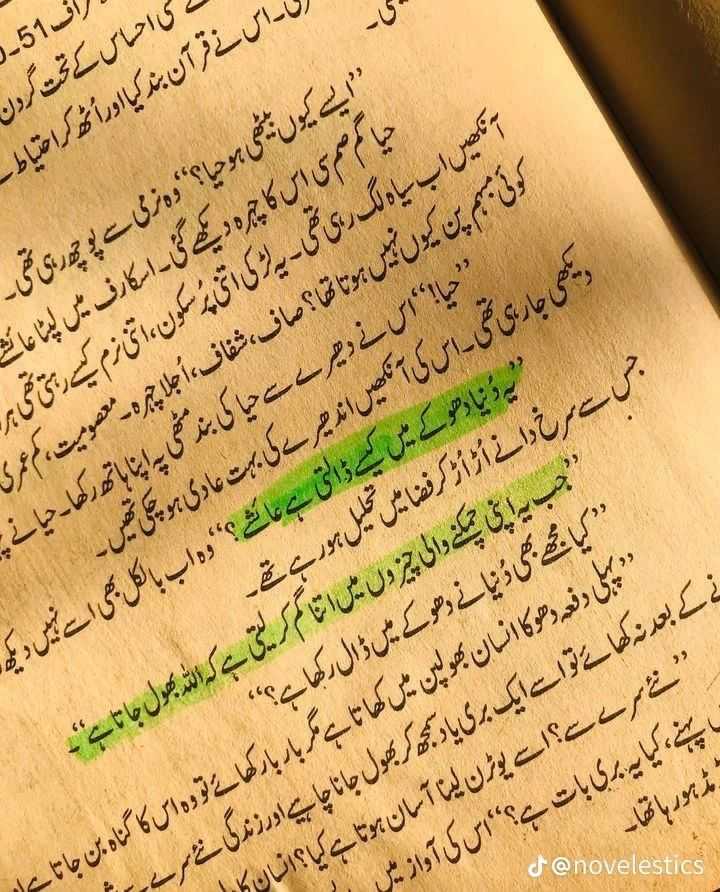 ی۔ اس نے قرآن بند کیا اور اُٹھ کر احتیاط سے
”ایسے کیوں بیٹھی ہو حیا؟“ وہ نرمی سے پوچھ رہی تھی۔
حیا گم صم سی اس کا چہرہ دیکھے گئی۔ اسکارف میں لپٹا عائشے
آنکھیں اب سیاہ لگ رہی تھی۔ یہ لڑکی اتنی پُرسکون، اتنی نرم کیسے رہتی تھی ہر
کوئی مبہم پن کیوں نہیں ہوتا تھا؟ صاف، شفاف، اُجلا چہرہ۔ معصومیت، کم عمری
”حیا!“ اس نے دھیرے سے حیا کی بند مٹھی پہ اپنا ہاتھ رکھا۔ حیا نے
دیکھی جا رہی تھی۔ اس کی آنکھیں اندھیرے کی بہت عادی ہو چکی تھیں۔
”یہ دُنیا دھوکے میں کیسے ڈالتی ہے عائشے؟“ وہ اب بالکل بھی اسے نہیں دیکھ
جس سے سرخ دانے اُڑ اُڑ کر فضا میں تحلیل ہو رہے تھے۔
”جب یہ اپنی چمکنے والی چیزوں میں اتنا گم کر لیتی ہے کہ اللہ بھول جاتا ہے“۔
”کیا مجھے بھی دُنیا نے دھوکے میں ڈال رکھا ہے؟“
”پہلی دفعہ دھوکا انسان بھولپن میں کھاتا ہے مگر بار بار کھائے تو وہ اس کا گناہ بن جاتا ہے
نے کے بعد نہ کھائے تو اسے ایک بری یاد سمجھ کر بھول جانا چاہیے اور زندگی نئے سرے سے
”نئے سرے سے؟ اسے یوٹرن لینا آسان ہوتا ہے کیا؟ انسان کا
پہنے، کیا یہ بری بات ہے؟“ اس کی آواز میں
ہو رہا تھا۔
@novelestics